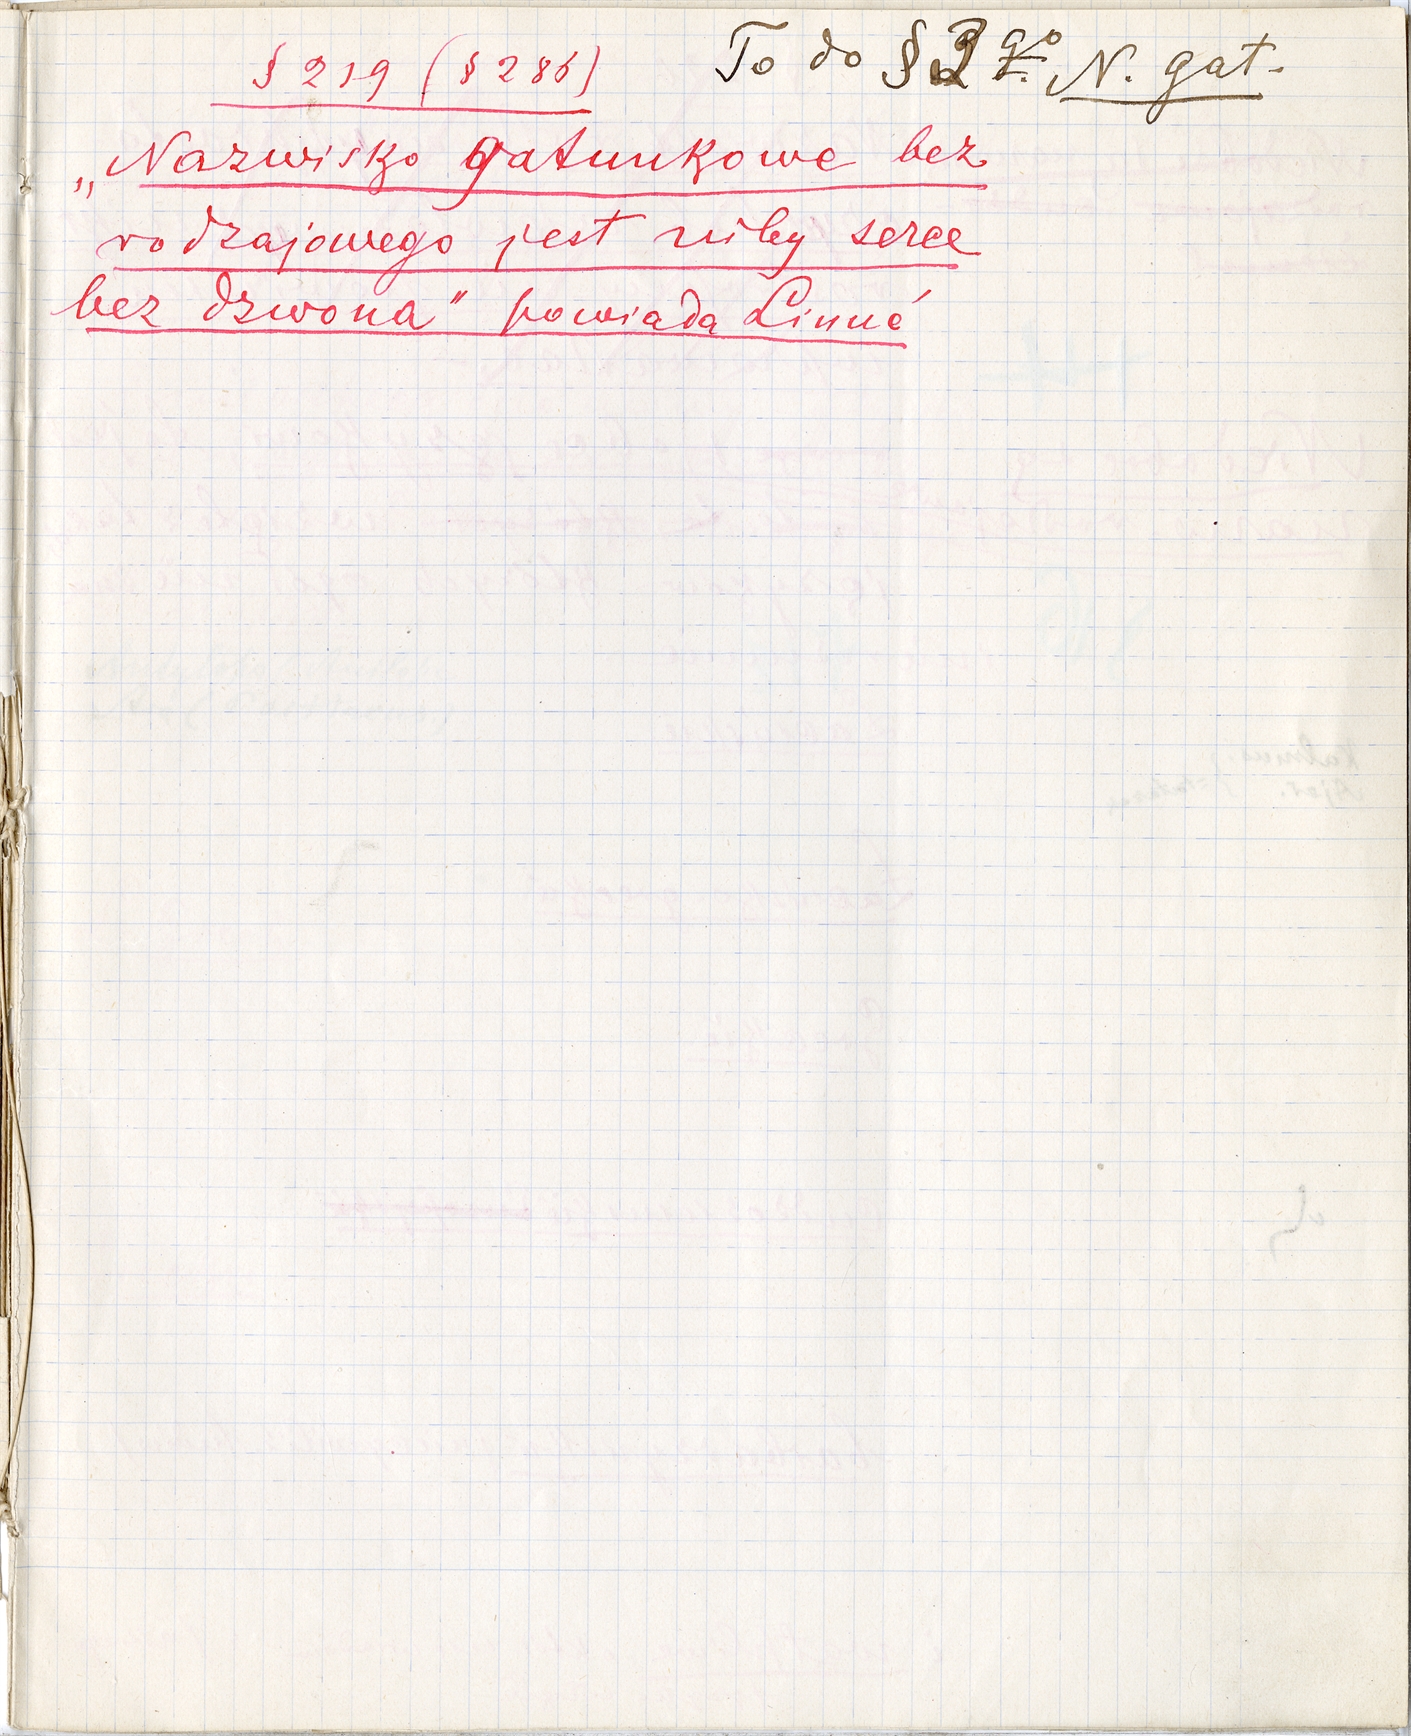 § 219 (§ 286)
To do § 2 go N. gat.
„Nazwisko gatunkowe bez
rodzajowego jest niby serce
bez dzwona" powiada Linné